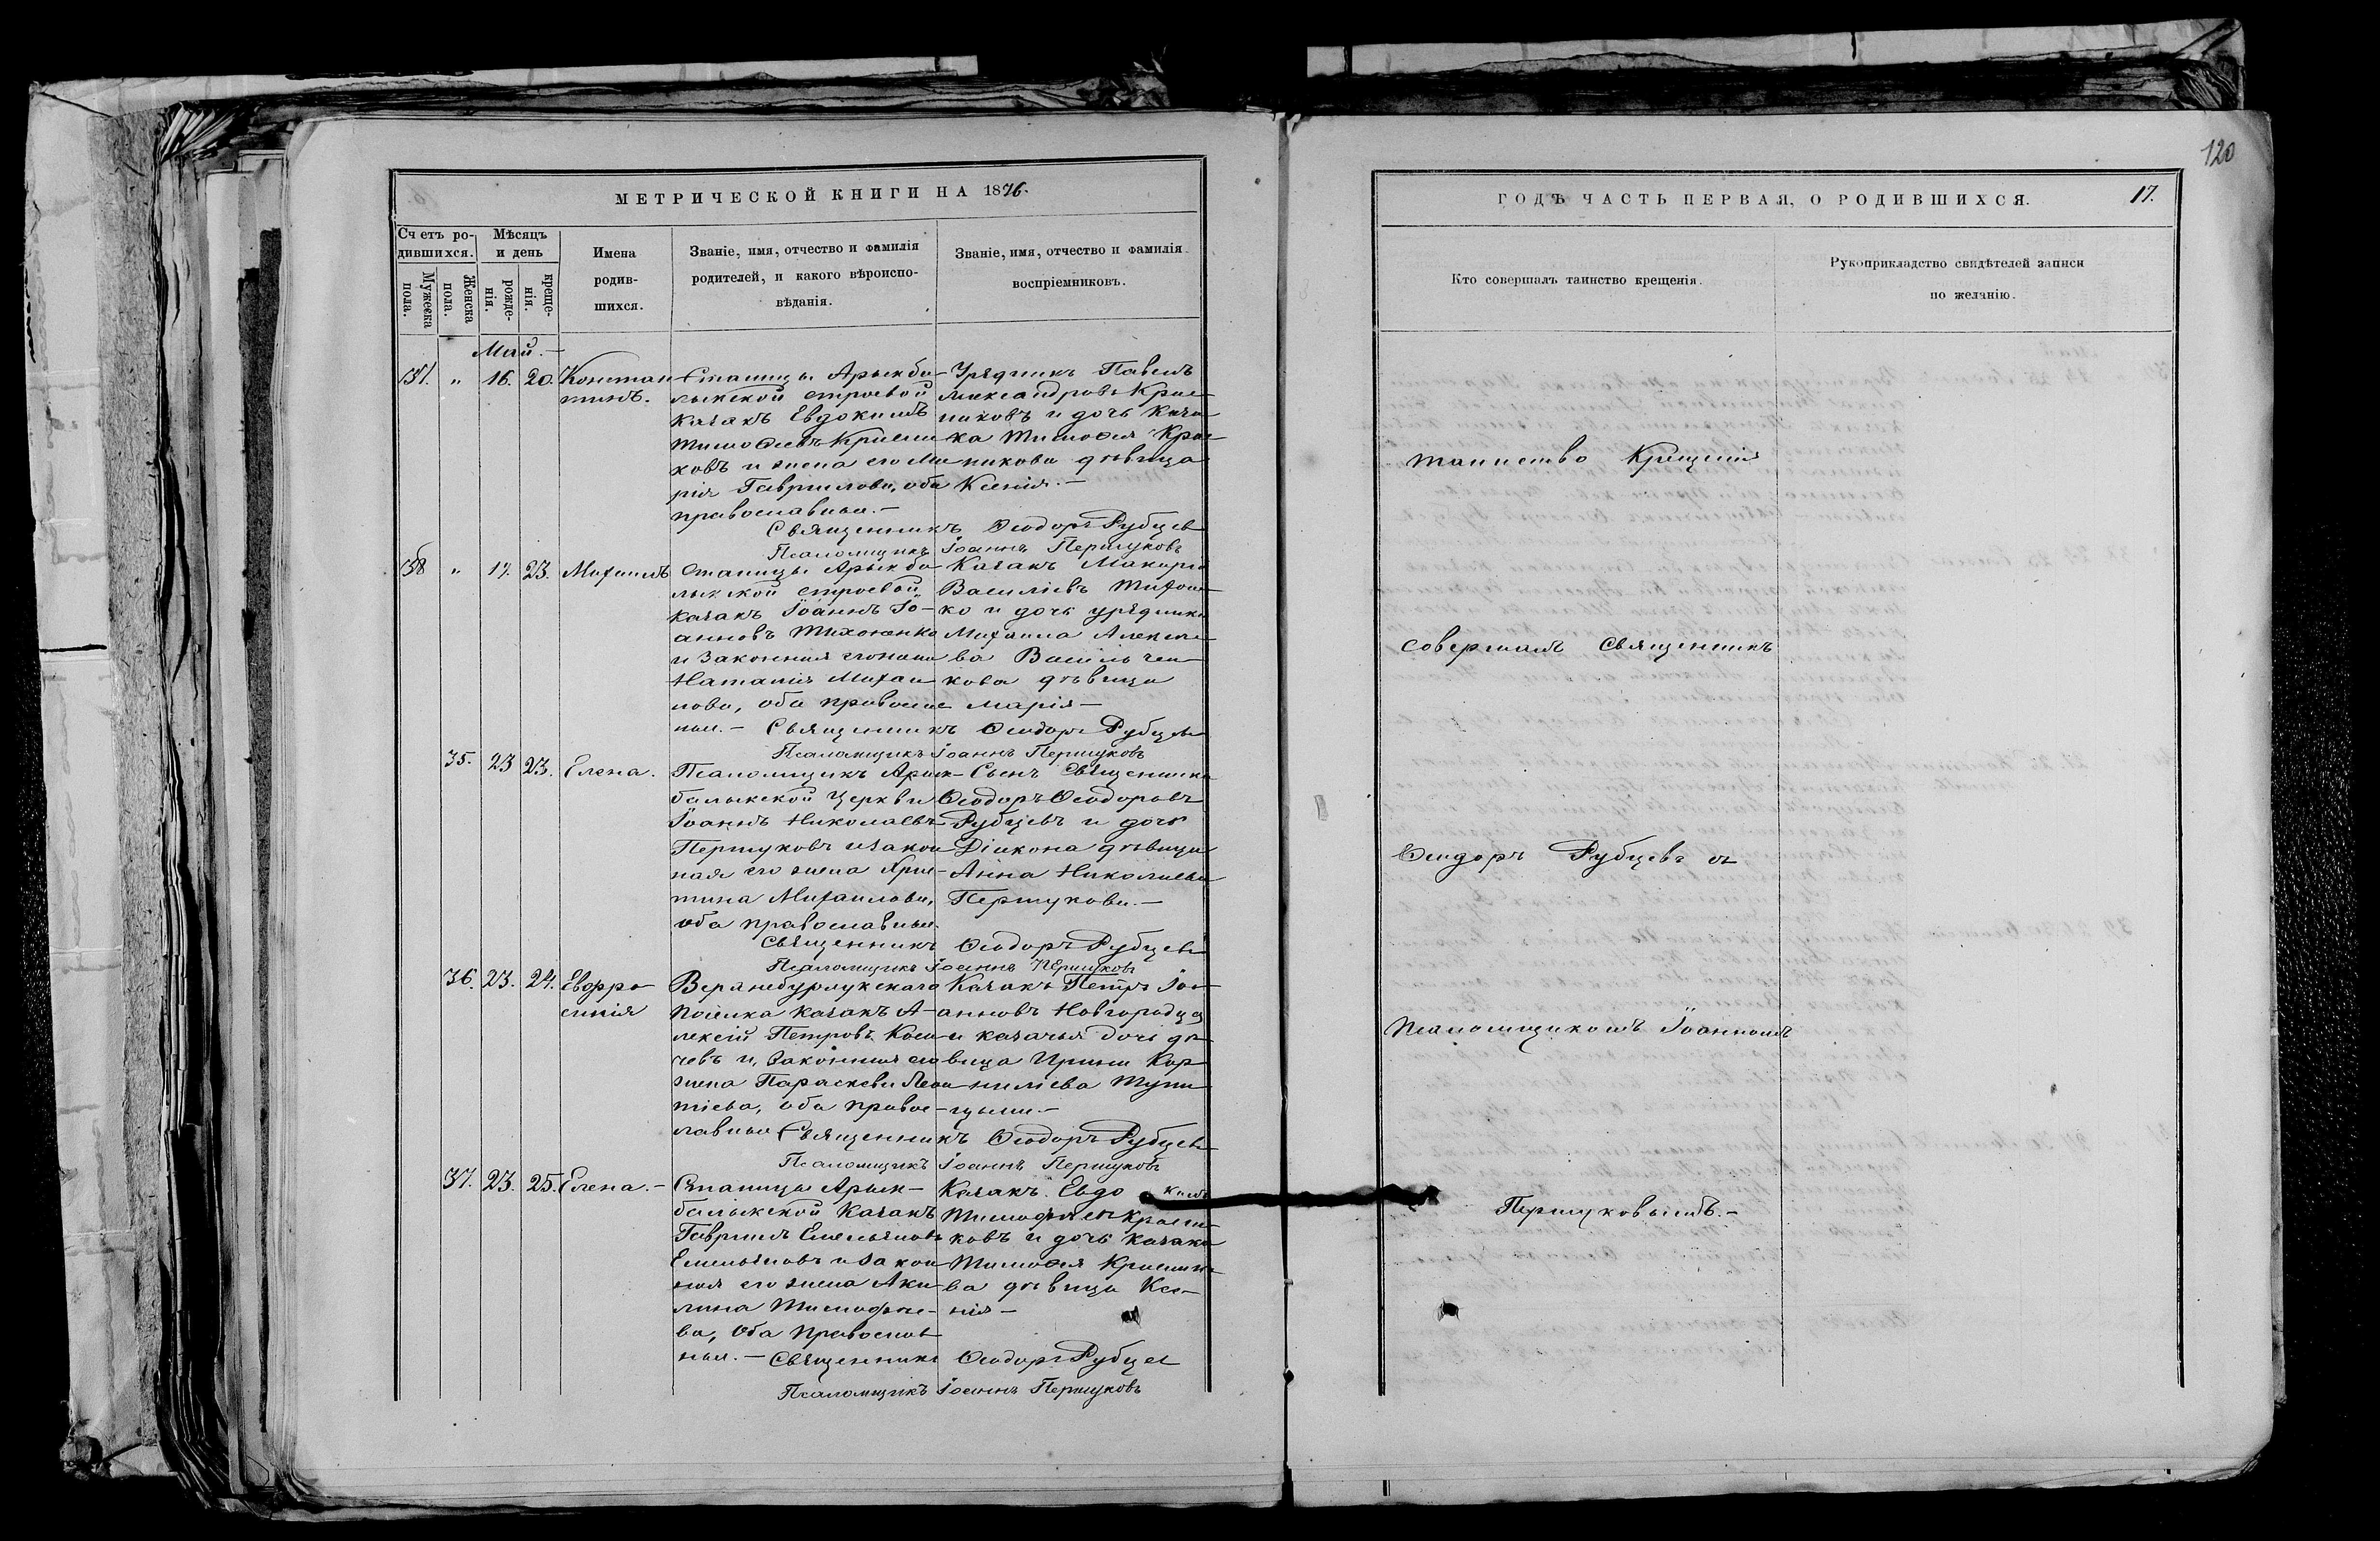 МЕТРИЧЕСКОЙ КНИГИ НА 1876.
Счетъ ро-
дившихся.
Мужеска
пола.
Женска
пола.
Мѣсяцъ
и день
рожде-
нія.
креще-
нія.
Имена
родив-
шихся.
Званіе, имя, отчество и фамилія
родителей, и какого вѣроиспо-
вѣданія.
Званіе, имя, отчество и фамилія
воспріемниковъ.
Май.
37. " 16. 20. Констан
тинъ.
Станицы Арыкба-
лыкской строевой
казакъ Евдокимъ
Тимофеевъ
ковъ и жена его Ма
рія Гаврилова, оба
православные.-
Урядникъ Павелъ
Александровъ Крас-
никовъ и дочь каза-
ка Тимофея Крас-
никова дѣвица
Ксенія.-
Священникъ Ѳеодоръ Рубцев
Псаломщикъ Іоаннъ Першуковъ
38 " 17. 23. Михаилъ
Станицы Арыкба-
лыкской строевой
казакъ Іоаннъ Іо-
анновъ Тихоненко
и законная его жена
Наталія Михаи
лова, оба правосла
ные.-
Казакъ Макарій
Васильевъ Тихонен-
ко и дочь урядника
Михаила Алексее-
ва Васильчен-
кова дѣвица
Марія-
Священникъ Ѳеодоръ Рубцевъ
Псаломщикъ Іоаннъ Першуковъ
35. 23 23. Елена.
Псаломщикъ Арык-
балыкской церкви
Іоаннъ Николаевъ
Першуковъ и закон
ная его жена Хрис-
тина Михаилова,
оба православные.
Сынъ священника
Ѳеодоръ Ѳеодоровъ
Рубцевъ и дочь
Діакона дѣвица
Анна Николаева
Першукова.-
Священникъ Ѳеодоръ Рубцевъ
Псаломщикъ Іоаннъ Першуковъ
36. 23. 24. Евфро-
синія
Верхнебурлукскаго
поселка казакъ А-
лексѣй Петровъ
чевъ и законная его
жена Параскева Леон
тіева, оба правос-
лавные
Казакъ Петръ Іо-
анновъ Новгородцев
и казачья дочь дѣ-
вица Ирина Кор
ниліева
цына.-
Священникъ Ѳеодоръ Рубцевъ
Псаломщикъ Іоаннъ Першуковъ
37. 23. 25. Елена.-
Станицы Арык-
балыкской казакъ
Гавріилъ Емельяновъ
Емельяновъ и закон
ная его жена Аки-
лина Тимофее-
ва, оба православ
ные.-
Казакъ Евдокимъ
Тимофеевъ Красни-
ковъ и дочь казака
Тимофея Краснико
ва дѣвица Ксе-
нія-
Священникъ Ѳеодоръ Рубцев
Псаломщикъ Іоаннъ Першуковъ
120
ГОДЪ ЧАСТЬ ПЕРВАЯ, О РОДИВШИХСЯ.
17.
Кто совершалъ таинство крещенія.
Рукоприкладство свидѣтелей записи
по желанію.
таинство Крещенія
совершалъ священникъ
Ѳеодоръ Рубцевъ съ
псаломщикомъ Іоанномъ
Першуковымъ.-